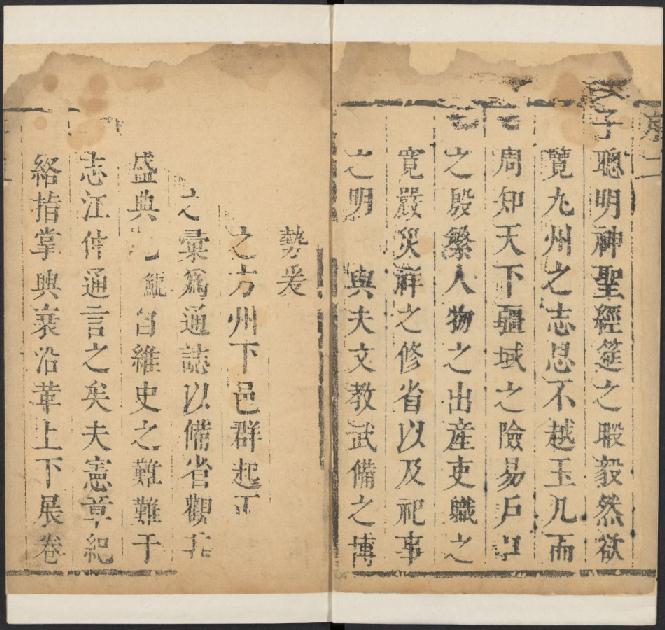 序 二
子聰明神聖經筵之暇毅然欲
覽九州之志思不越玉几而
周知天下疆域之險易戶口
之殷繁人物之出產吏職之
寬嚴災祥之修省以及祀事
之明 與夫文教武備之博
勢爰
之方州下邑群起而
之彙為通誌以備省觀
盛典 維史之難難于
志江 通言之矣夫憲章紀
絡指掌興衰沿革上下展卷